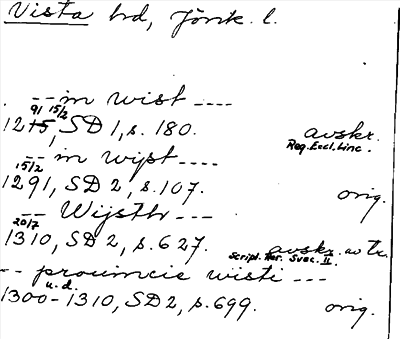 Vista hd, Jönk. l.
-- in wist ----
91 15/2
1215, SD 1, s. 180. avskr.
Reg. Eccl. Linc.
-- in wijst ----
15/2
1291, SD 2, s. 107. orig.
-- Wijsthr ---
20/7
1310, SD 2, s. 627. avskr. av
Script. Rer. Svec. II.
-- prouincie wisti ---
u. d.
1300-1310, SD 2, s. 699. orig.